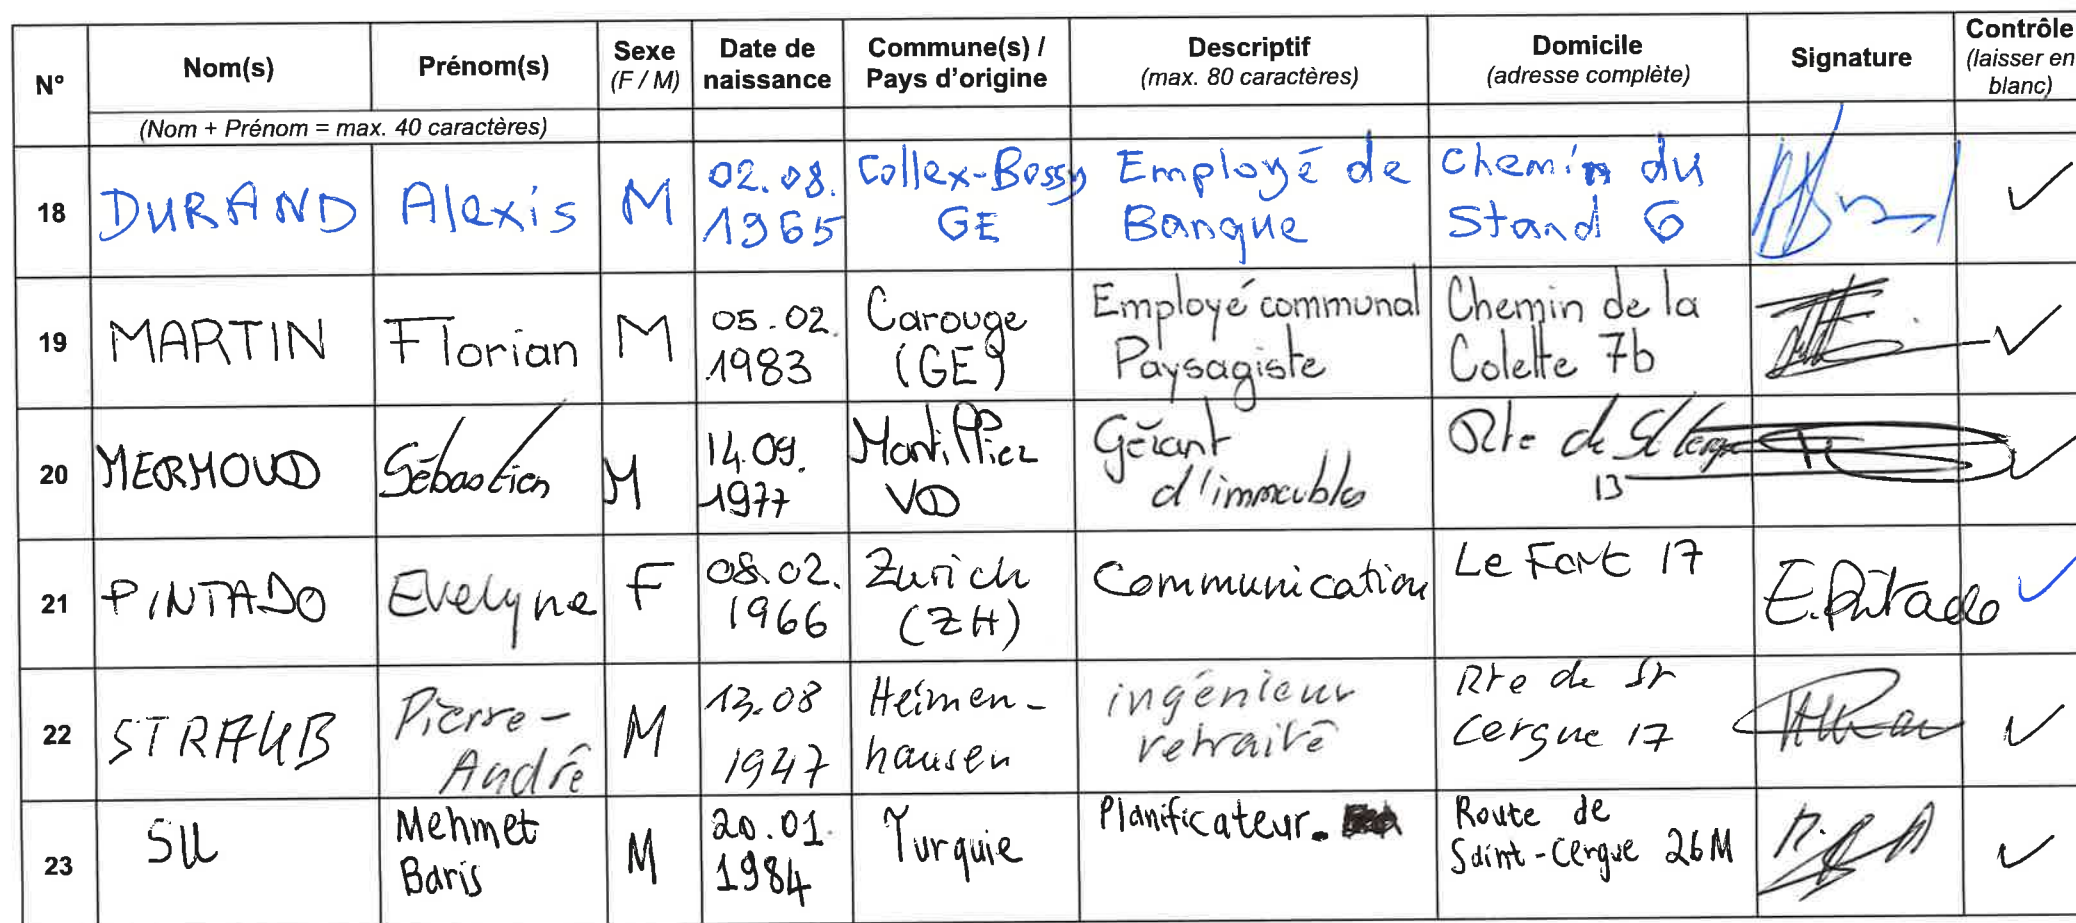 N° Nom(s) Prénom(s) Sexe (F / M) Date de naissance Commune(s) / Pays d'origine Descriptif (max. 80 caractères) Domicile (adresse complète) Signature Contrôle (laisser en blanc)
(Nom + Prénom = max. 40 caractères)
18 DURAND Alexis M 02.08. 1965 Collex-Bossy GE Employé de Banque Chemin du Stand 6
19 MARTIN Florian M 05.02. 1983 Carouge (GE) Employé communal Paysagiste Chemin de la Colette 7b
20 MERMOUD Sébastien M 14.09. 1977 Montilliez VD Gérant d'immeubles Rte de St Cergue 13
21 PINTADO Evelyne F 08.02. 1966 Zurich (ZH) Communication Le Fort 17 E. Pintado
22 STRAUB Pierre-André M 13.08 1947 Heimen-hausen ingénieur retraité Rte de St Cergue 17
23 SU Mehmet Baris M 20.01. 1984 Turquie Planificateur. Route de Saint-Cergue 26M